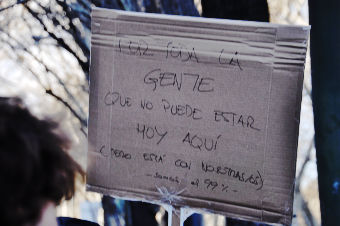 POR TODA LA
GENTE
QUE NO PUEDE ESTAR
HOY AQUÍ
(PERO ESTÁ CON NOSOTRAS/OS)
- somos el 99% -